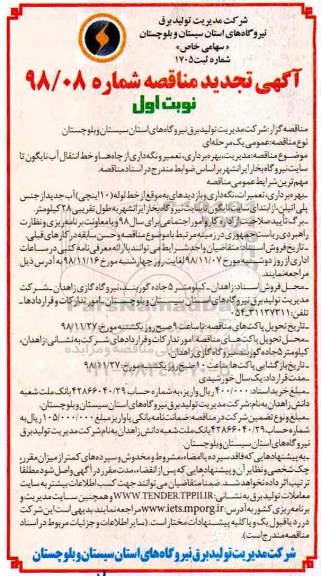 شرکت مدیریت تولید برق
نیروگاه‌های استان سیستان و بلوچستان
« سهامی خاص»
شماره ثبت ۱۷۰۵
آگهی تجدید مناقصه شماره ۹۸/۰۸
نوبت اول
مناقصه گزار: شرکت مدیریت تولید برق نیروگاه های استان سیستان و بلوچستان
نوع مناقصه: عمومی یک مرحله ای
موضوع مناقصه: مدیریت، بهره برداری، تعمیر و نگه‌داری از چاه‌ها و خط انتقال آب نایگون تا
سایت نیروگاه بخار ایرانشهر بر اساس ضوابط مندرج در اسناد مناقصه.
مهم ترین شرایط عمومی مناقصه
ـ بهره برداری، تعمیرات، نگه‌داری و بازدیدهای به موقع از خط لوله (۱۰ اینچی) آب جدید از جنس
پلی اتیلن، از ابتدای سایت نایگون تا سایت نیروگاه بخار ایرانشهر به طول تقریبی ۲۸ کیلومتر.
ـ برگ تأیید صلاحیت از اداره کار و امور اجتماعی برای سال ۹۸ و یا معاونت برنامه ریزی و نظارت
راهبردی ریاست جمهوری در زمینه مرتبط با موضوع مناقصه و حسن سابقه در کارهای قبلی.
ـ تاریخ فروش اسناد: متقاضیان واجد شرایط می توانند با ارائه معرفی نامه کتبی در ساعات
اداری از روز دوشنبه مورخ ۹۸/۱۱/۰۷ لغایت روز چهارشنبه مورخ ۹۸/۱۱/۱۶ به آدرس ذیل
مراجعه نمایند.
ـ محل فروش اسناد: زاهدان ـ کیلومتر ۵ جاده گوربند، نیروگاه گازی زاهدان ـ شرکت
مدیریت تولید برق نیروگاه های استان سیستان و بلوچستان ـ امور تدارکات و قراردادها ـ
تلفن: ۳۱۱۳۷۳۱۱ـ۰۵۴
ـ تاریخ تحویل پاکت های مناقصه: تا ساعت ۹ صبح روز یکشنبه مورخ: ۹۸/۱۱/۲۷
ـ محل تحویل پاکت های مناقصه: امور تدارکات و قراردادهای شرکت به نشانی: زاهدان،
کیلومتر ۵ جاده گوربند، نیروگاه گازی زاهدان.
ـ تاریخ بازگشایی پاکت ها: ساعت ۱۰ صبح روز یکشنبه مورخ: ۹۸/۱۱/۲۷
ـ مدت قرارداد: یک سال خورشیدی
ـ مبلغ خرید اسناد: ۴۰۰/۰۰۰ ریال واریز به شماره حساب ۴۲۸۶۶۰۴۰/۲۹ بانک ملت شعبه
دانش زاهدان به نام: شرکت مدیریت تولید برق نیروگاه های استان سیستان و بلوچستان
ـ مبلغ و نوع تضمین شرکت در مناقصه: ضمانت نامه بانکی یا واریز مبلغ ۱۰۵/۰۰۰/۰۰۰ ریال به
شماره حساب ۴۲۸۶۶۰۴۰/۲۹ بانک ملت شعبه دانش زاهدان به نام شرکت مدیریت تولید برق
نیروگاه های استان سیستان و بلوچستان
ـ به پیشنهادهایی که فاقد سپرده یا امضاء، مشروط و مخدوش و سپرده های کمتر از میزان مقرر،
چک شخصی و نظایر آن و پیشنهادهایی که پس از انقضاء مدت مقرر در آگهی واصل شود مطلقا
ترتیب اثر داده نخواهد شد. ضمنا متقاضیان می توانند جهت کسب اطلاعات بیشتر به سایت
معاملات تولید برق به نشانی: WWW.TENDER.TPPH.IR و همچنین سایت مدیریت و
برنامه ریزی کشور به آدرس: www.iets.mporg.ir مراجعه نمایند. بدیهی است این شرکت
در رد یا قبول یک یا کلیه پیشنهادات مختار است. (سایر اطلاعات و جزئیات مربوط در اسناد
مناقصه مندرج است).
شرکت مدیریت تولید برق نیروگاه های استان سیستان و بلوچستان